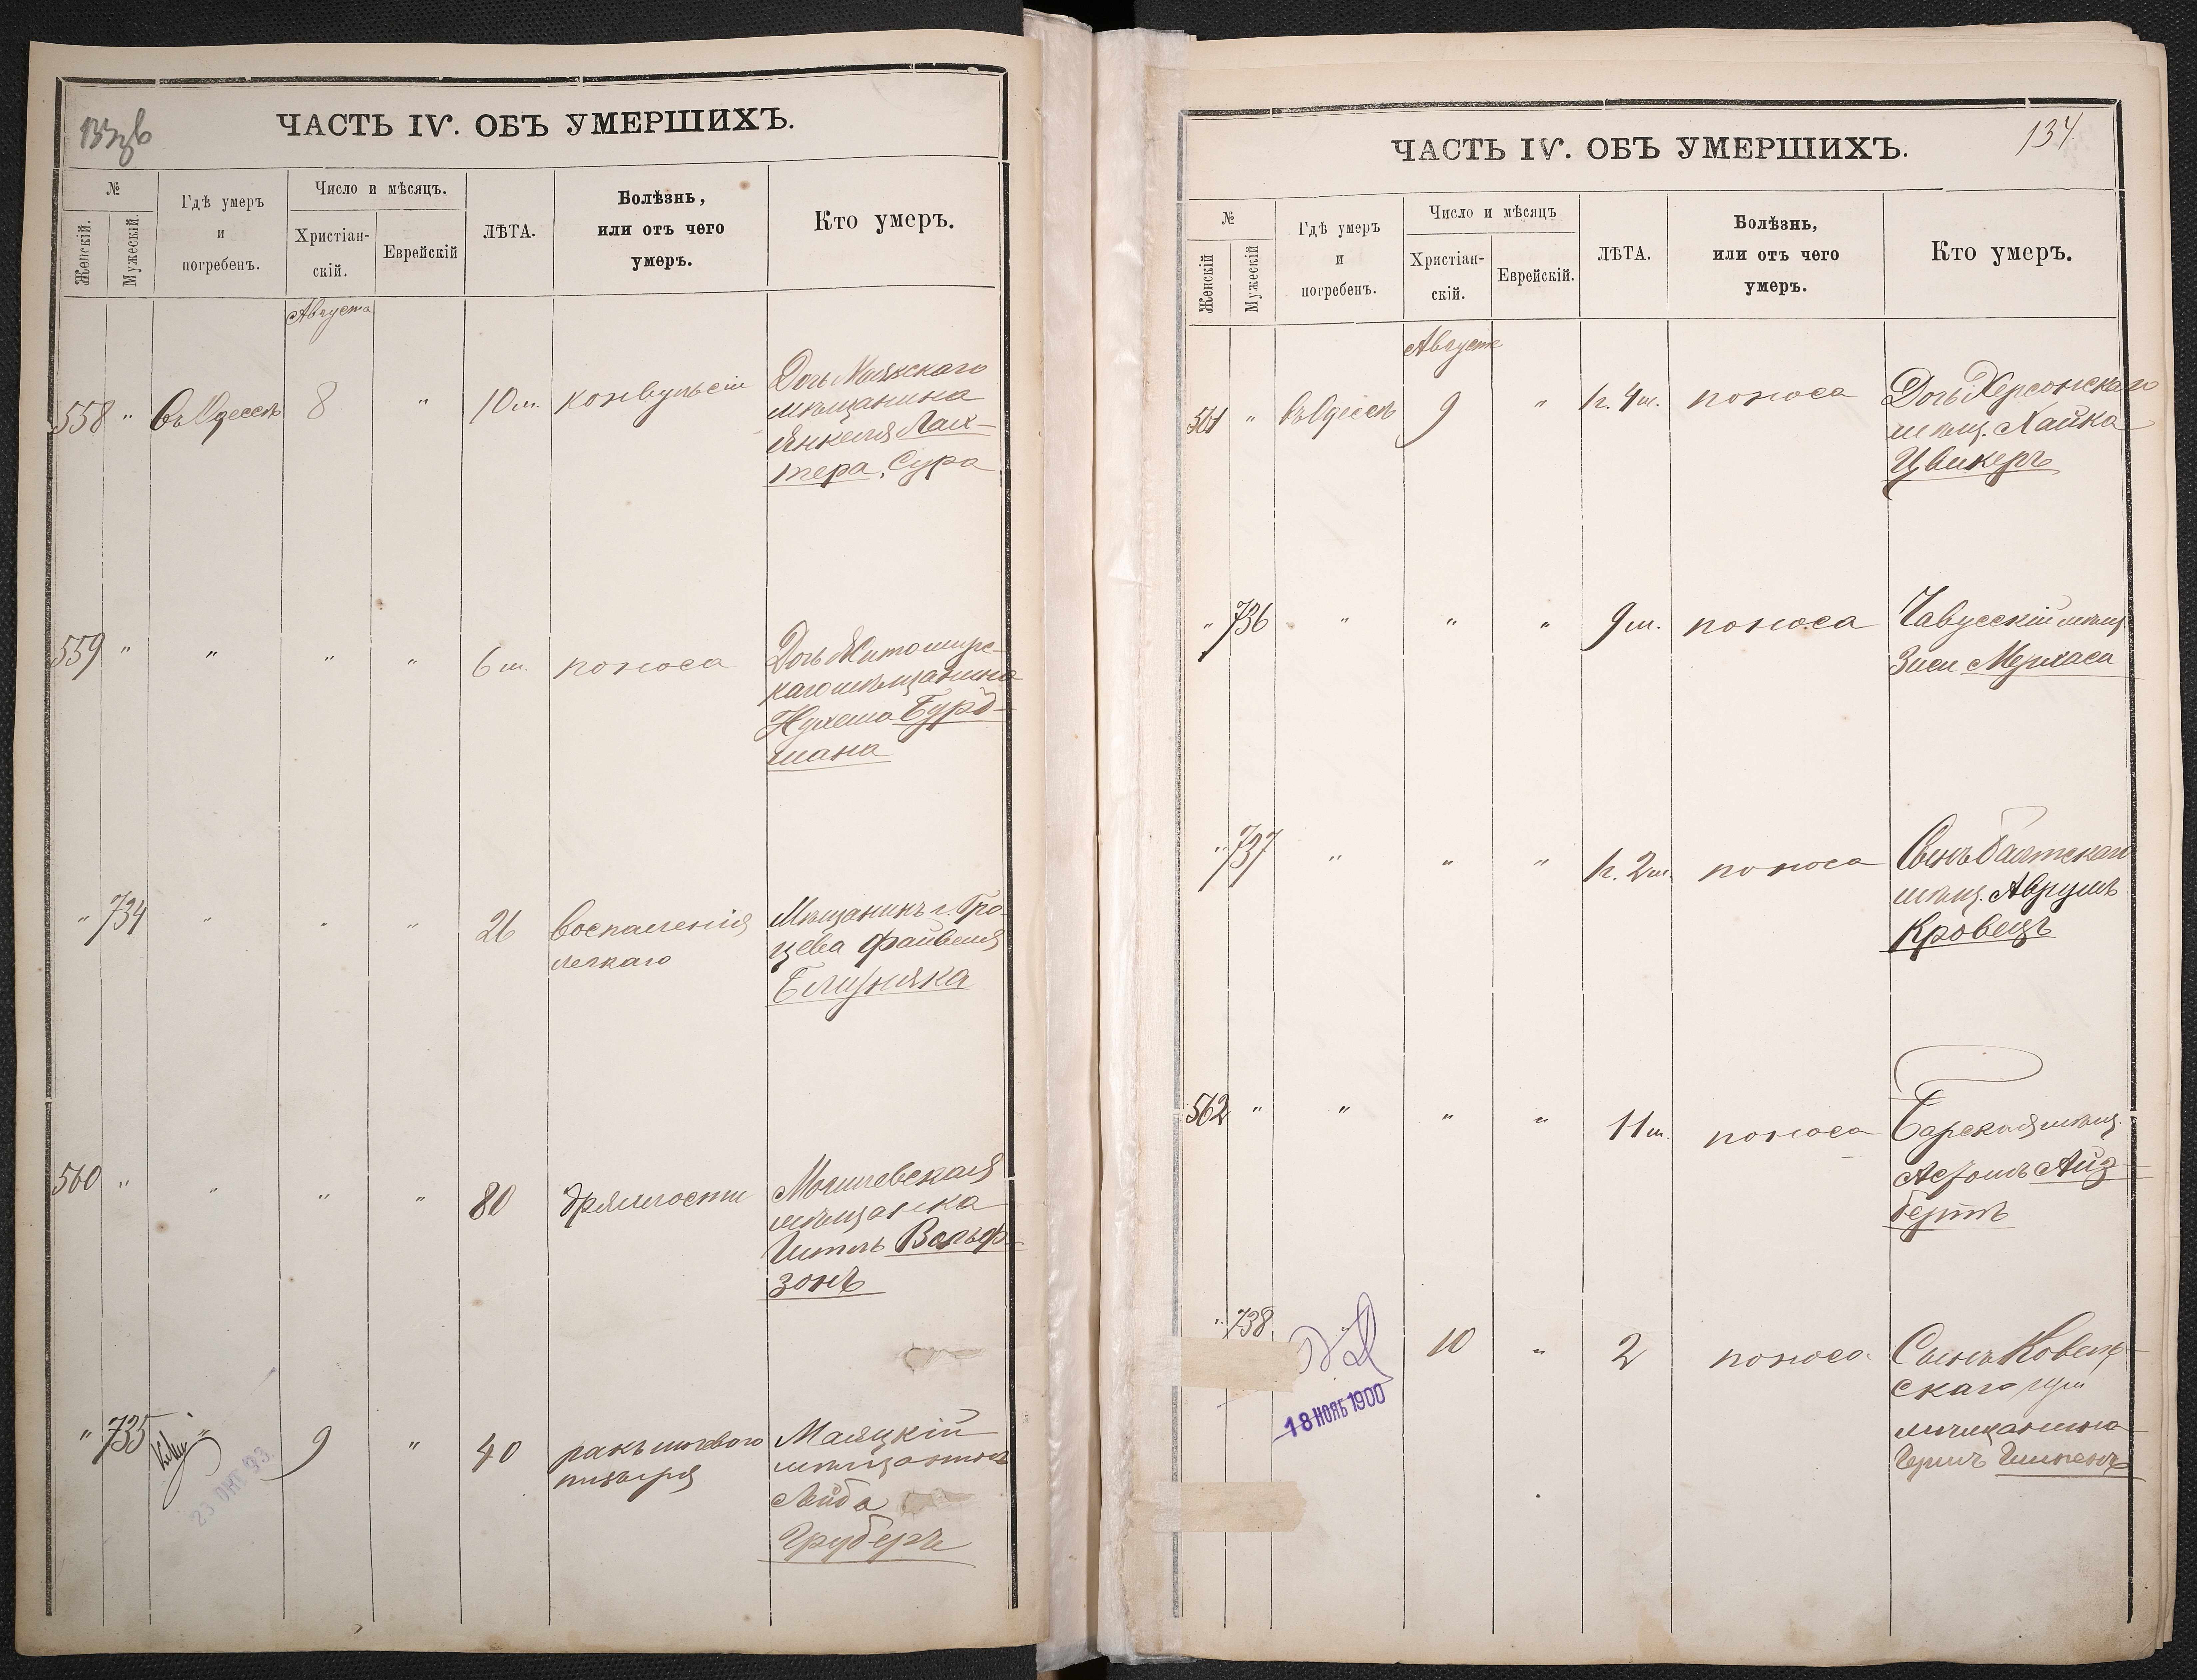 133 об
ЧАСТЬ IV. ОБЪ УМЕРШИХЪ.
№
Женскій.
Мужескій.
Гдѣ умеръ
и
погребенъ.
Число и мѣсяцъ.
Христіан-
скій.
Еврейскій
ЛѢТА.
Болѣзнь,
или отъ чего
умеръ.
Кто умеръ.
Августа
558 " въ Одессѣ 8 " 10 м. конвульсіи
Дочь Маякскаго
мѣщанина
Янкеля Лах-
тера, Сура
559 " " " " 6 м. поноса
Дочь Житомирс-
каго мѣщанина
Нухема Бурд-
мана
" 734 " " " 26 воспаленія
легкаго
Мѣщанинъ г.
Файвеля
560 " " " " 80 дряхлости
Могилевская
мѣщанка
Гитль Вольф-
зонъ
" 735 " 9 " 40 ракъ мочевого
пузыря
Маяцкій
мѣщанинъ
Лейба
Груберъ
23 ОКТ 93.
134
ЧАСТЬ IV. ОБЪ УМЕРШИХЪ.
№
Женскій
Мужескій
Гдѣ умеръ
и
погребенъ.
Число и мѣсяцъ
Христіан-
скій.
Еврейскій.
ЛѢТА.
Болѣзнь,
или отъ чего
умеръ.
Кто умеръ.
Августа
561 " въ Одессѣ 9 " 1 г. 4 м. поноса
Дочь Херсонскаго
мѣщ. Хайка
Цвикеръ
" 736 " " " 9 м. поноса
Чавусскій мѣщ.
Зиси
" 737 " " " 1 г. 2 м. поноса
Сынъ Балтскаго
мѣщ. Аврумъ
Кровецъ
562 " " " " 11 м. поноса
Барская мѣщ.
Айз-
бергъ
" 738 " 10 " 2 поноса
Сынъ Ковель-
скаго
мѣщанина
Гершъ
18 НОЯБ 1900